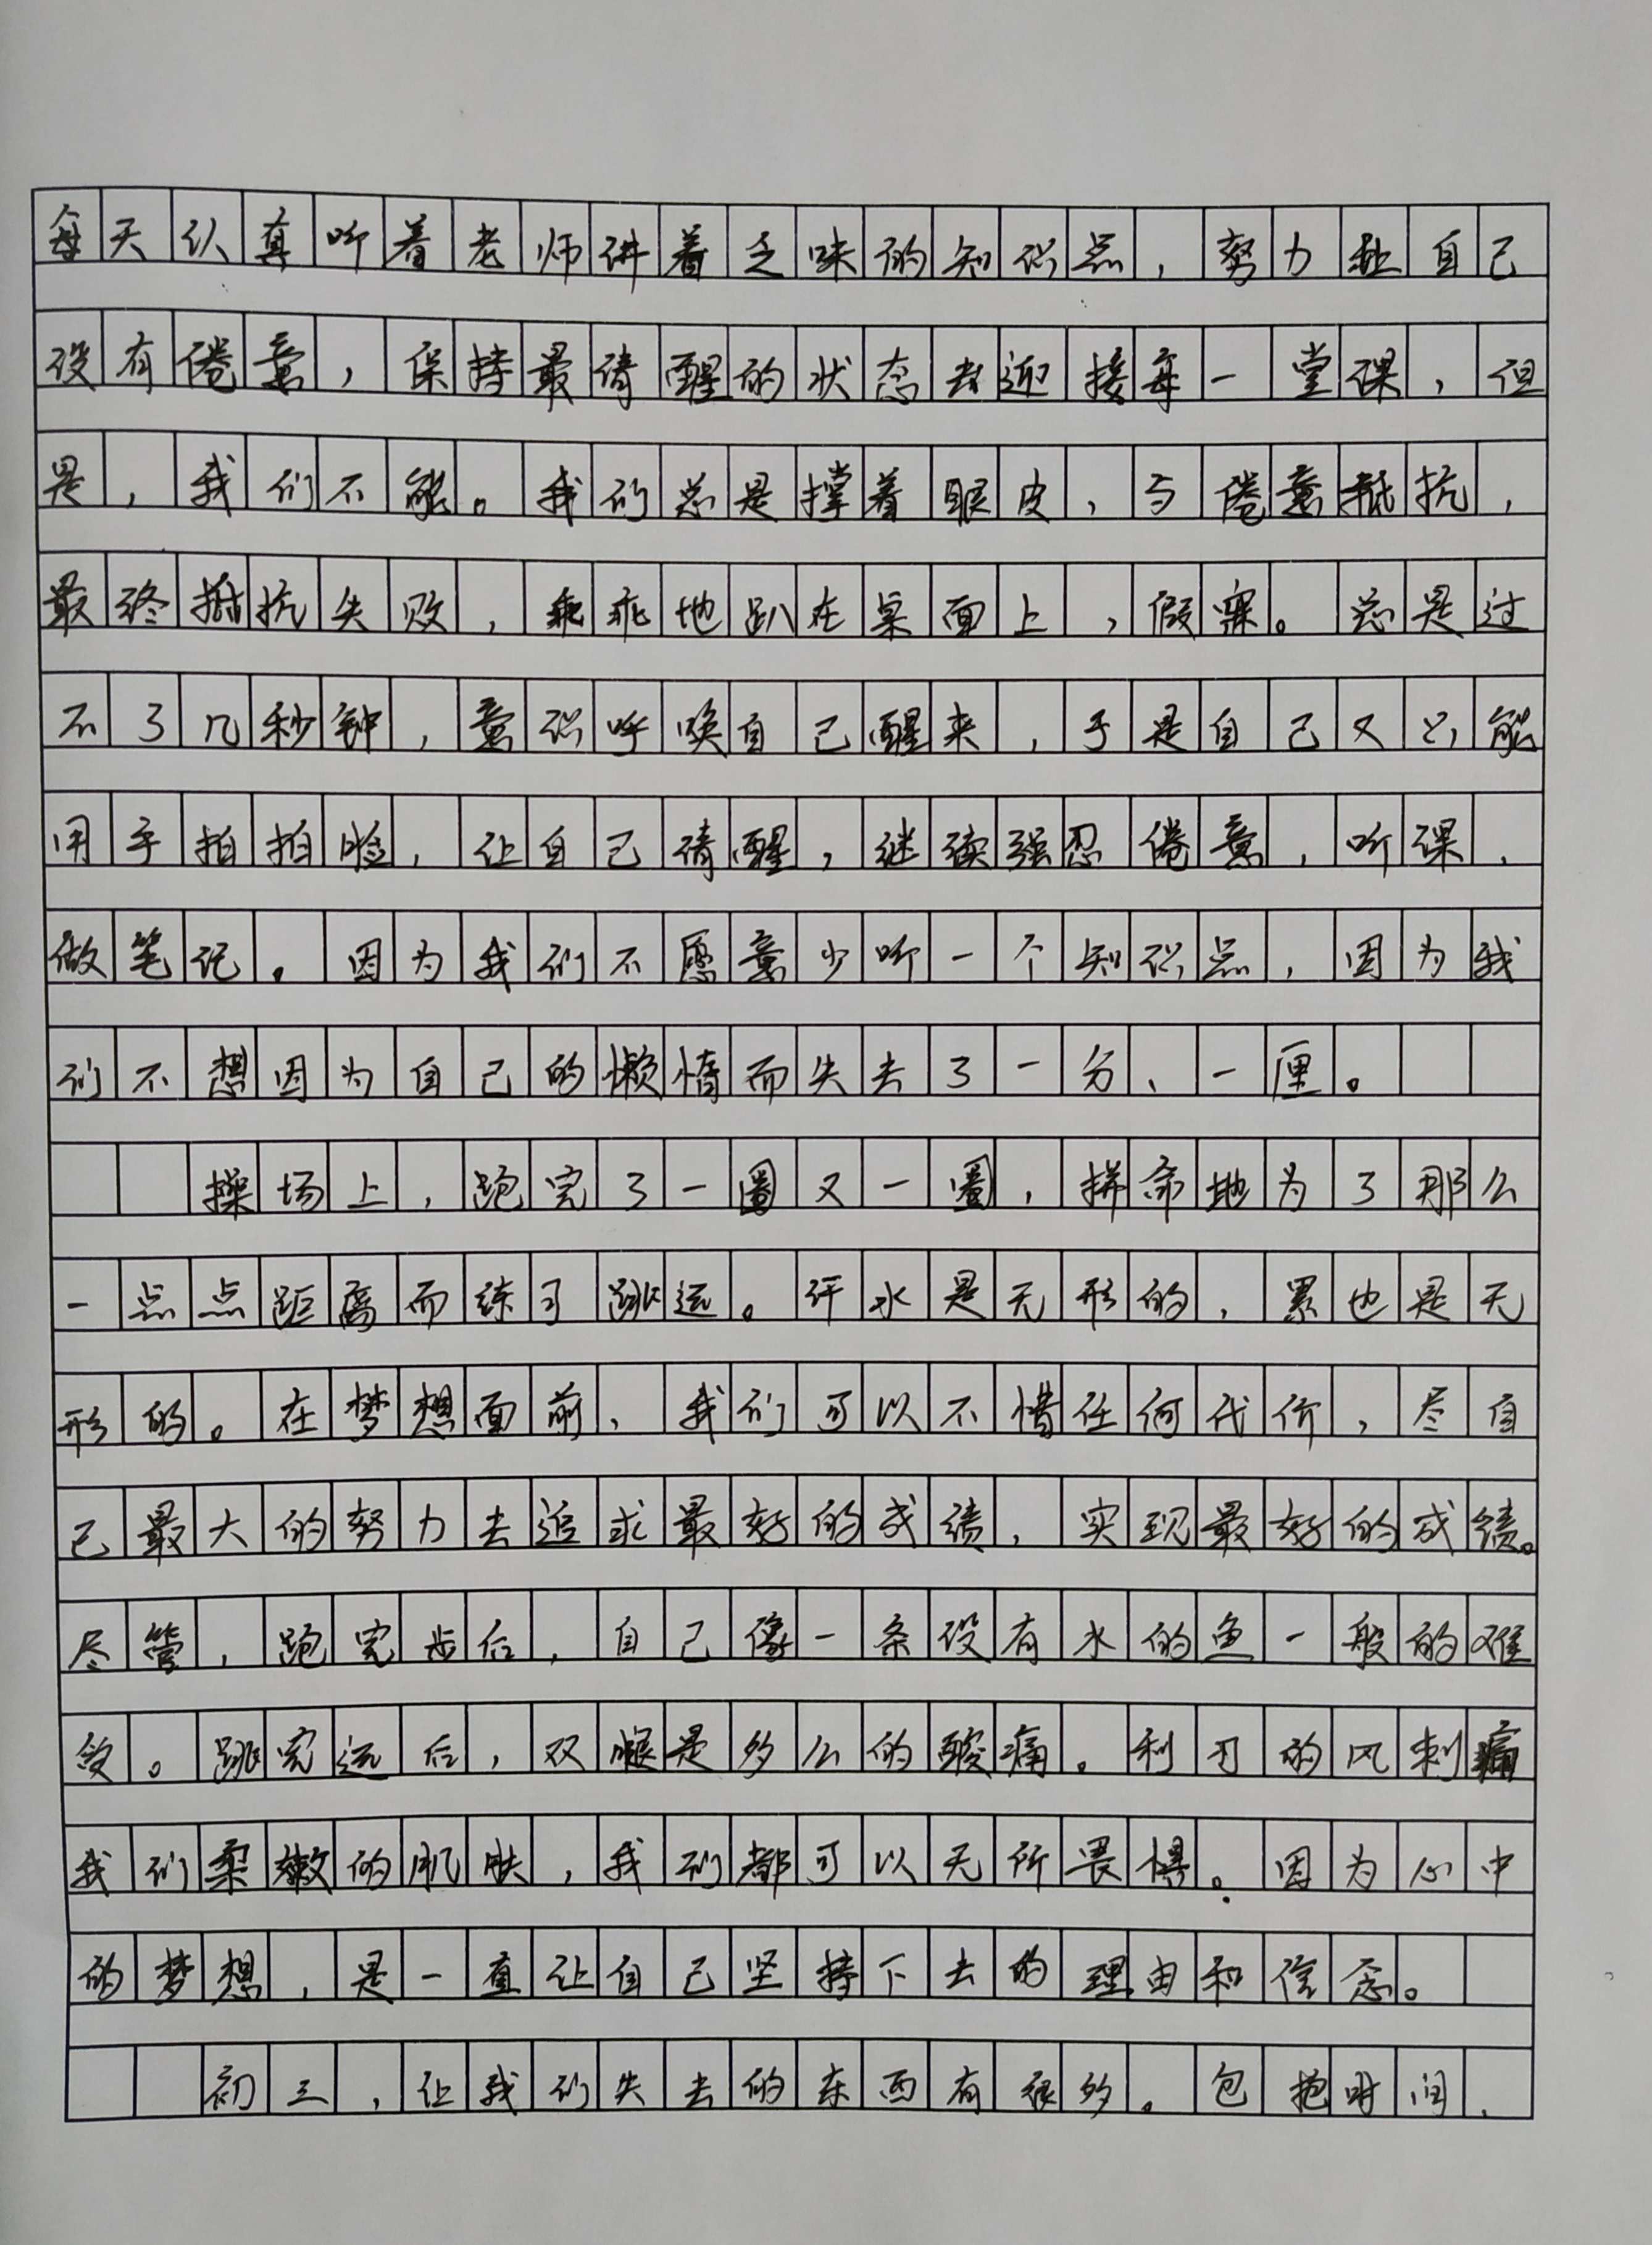 每天认真听着老师讲着乏味的知识点，努力让自己
没有倦意，保持最清醒的状态去迎接每一堂课，但
是，我们不能。我们总是撑着眼皮，与倦意抵抗，
最终抵抗失败，乖乖地趴在桌面上，假寐。总是过
不了几秒钟，意识呼唤自己醒来，于是自己又只能
用手拍拍脸，让自己清醒，继续强忍倦意，听课、
做笔记。因为我们不愿意少听一个知识点，因为我
们不想因为自己的懒惰而失去了一分、一厘。
操场上，跑完了一圈又一圈，拼命地为了那么
一点点距离而练习跳远。汗水是无形的，累也是无
形的。在梦想面前，我们可以不惜任何代价，尽自
己最大的努力去追求最好的成绩，实现最好的成绩。
尽管，跑完步后，自己像一条没有水的鱼一般的难
受。跳完远后，双腿是多么的酸痛。利刃的风刺痛
我们柔嫩的肌肤，我们都可以无所畏惧。因为心中
的梦想，是一直让自己坚持下去的理由和信念。
初三，让我们失去的东西有很多。包抱时间、